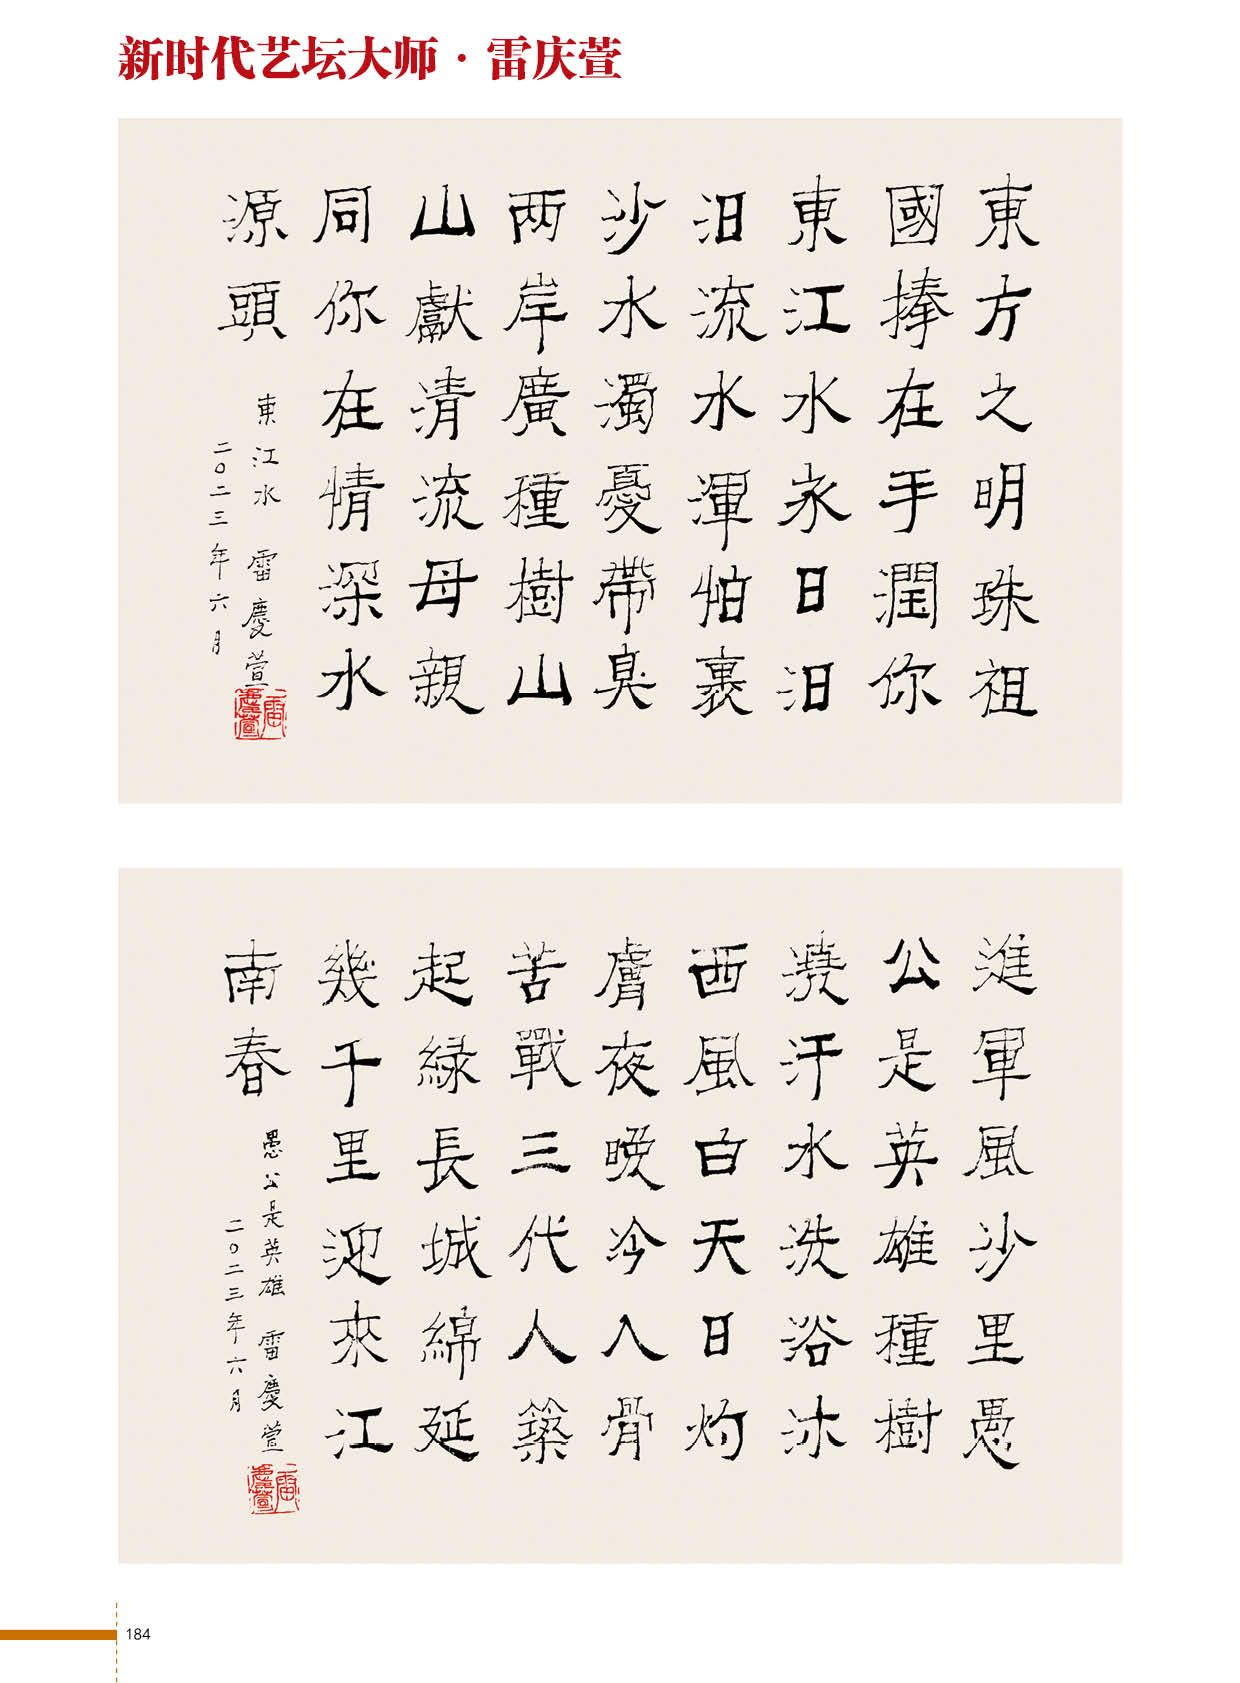 新时代艺坛大师·雷庆萱
東方之明珠祖
國捧在手潤你
東江水永日汨
汨流水渾怕裹
沙水濁憂帶臭
两岸廣種樹山
山獻清流母親
同你在情深水
源頭
東江水 雷慶萱
二〇二三年六月
雷慶萱
進軍風沙里愚
公是英雄種樹
澆汗水洗浴沐
西風白天日灼
膚夜晚冷入骨
苦戰三代人築
起緑長城綿延
幾千里迎來江
南春
愚公是英雄 雷慶萱
二〇二三年六月
雷慶萱
184